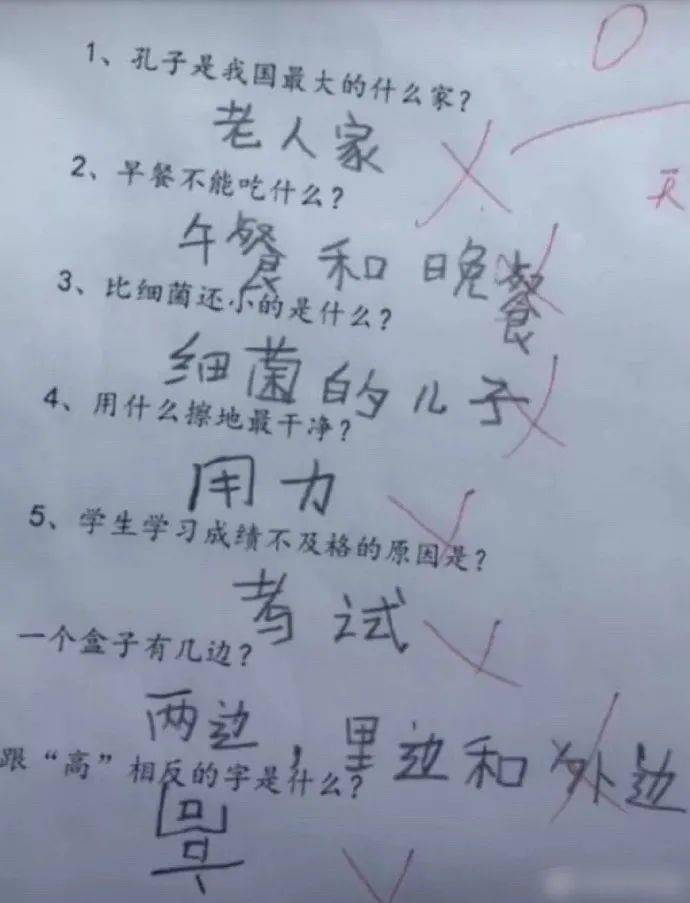 1、孔子是我国最大的什么家？
老人家
2、早餐不能吃什么？
午餐 和 晚餐
3、比细菌还小的是什么？
细菌的儿子
4、用什么擦地最干净？
用力
5、学生学习成绩不及格的原因是？
考试
一个盒子有几边？
两边，里边和外边
跟“高”相反的字是什么？